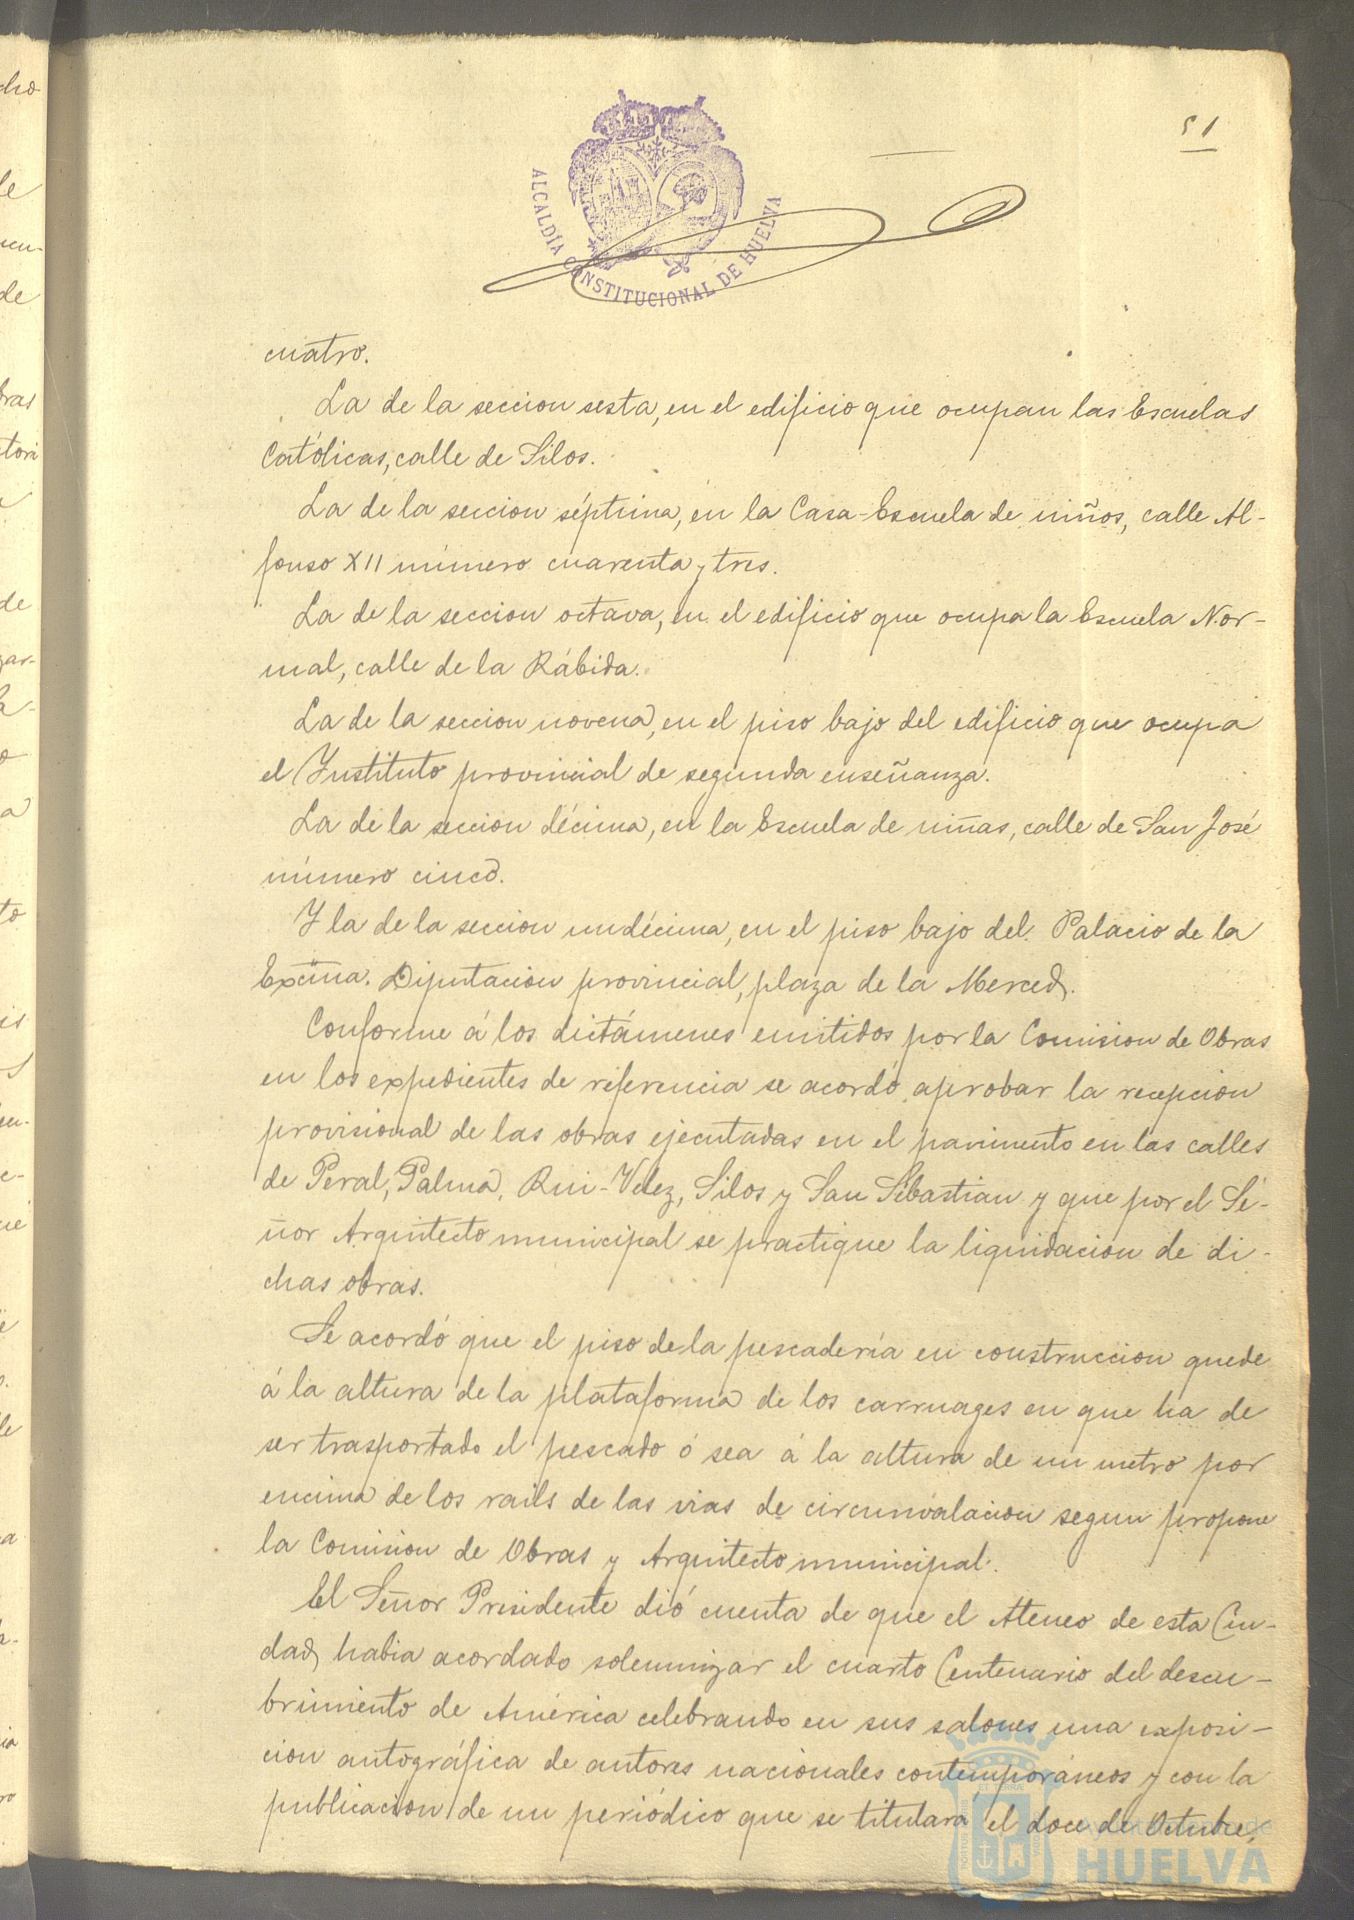 51
ALCALDÍA CONSTITUCIONAL DE HUELVA
cuatro.
La de la seccion sesta, en el edificio que ocupan las Escuelas
Católicas, calle de Silos.
La de la seccion séptima, en la Casa-Escuela de niños, calle Al-
fonso XII número cuarenta y tres.
La de la seccion octava, en el edificio que ocupa la Escuela Nor-
mal, calle de la Rábida.
La de la seccion novena, en el piso bajo del edificio que ocupa
el Ynstituto provincial de segunda enseñanza.
La de la seccion décima, en la Escuela de niñas, calle de San José
número cinco.
Y la de la seccion undécima, en el piso bajo del Palacio de la
Excma. Diputacion provincial, plaza de la Merced.
Conforme á los dictámenes emitidos por la Comision de Obras
en los expedientes de referencia se acordó aprobar la recepcion
provisional de las obras ejecutadas en el pavimento en las calles
de Peral, Palma, Rui-Velez, Silos y San Sebastian y que por el Se-
ñor Arquitecto municipal se practique la liquidacion de di-
chas obras.
Se acordó que el piso de la pescadería en construccion quede
á la altura de la plataforma de los carruages en que ha de
ser trasportado el pescado ó sea á la altura de un metro por
encima de los rails de las vias de circunvalacion segun propone
la Comision de Obras y Arquitecto municipal.
El Señor Presidente dió cuenta de que el Ateneo de esta Ciu-
dad, habia acordado solemnizar el cuarto Centenario del descu-
brimiento de América celebrando en sus salones una exposi-
cion autográfica de autores nacionales contemporáneos y con la
publicacion de un periódico que se titulará el doce de Octubre,
Ayuntamiento de
HUELVA